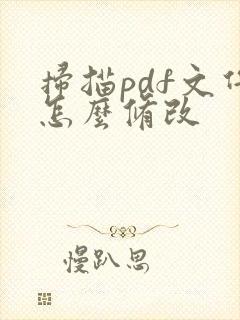 掃描pdf文件
怎麼修改
慢趴思